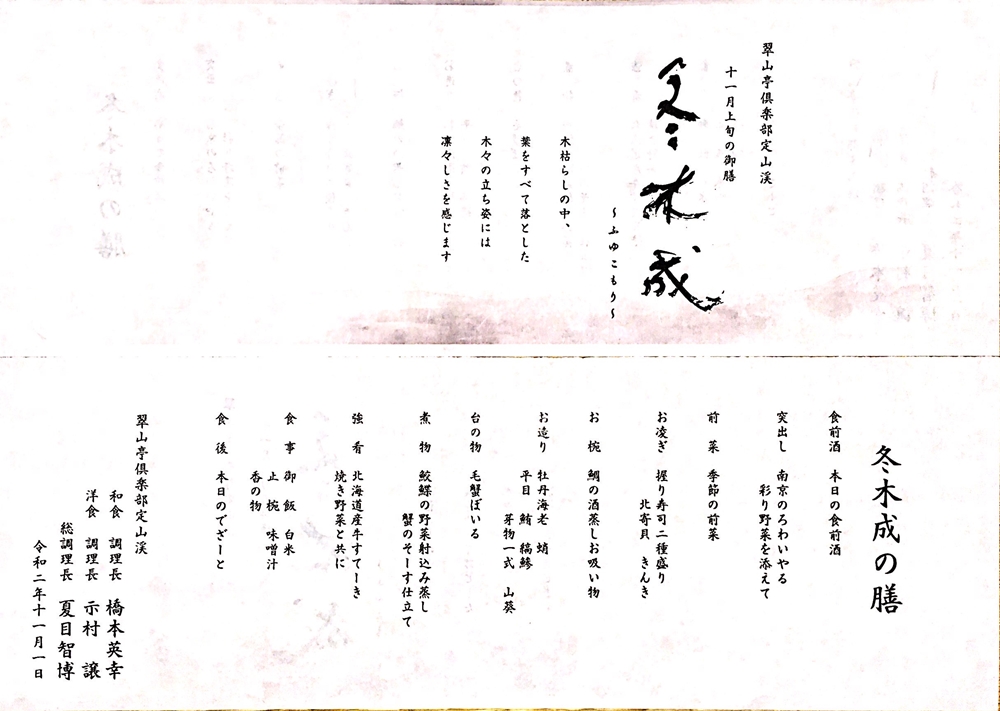 翠山亭倶楽部定山渓
十一月上旬の御膳
冬木成
～ふゆこもり～
木枯らしの中、
葉をすべて落とした
木々の立ち姿には
凛々しさを感じます
冬木成の膳
食前酒 本日の食前酒
突出し 南京のろわいやる
彩り野菜を添えて
前菜 季節の前菜
お凌ぎ 握り寿司二種盛り
北寄貝 きんき
お椀 鯛の酒蒸しお吸い物
お造り 牡丹海老 蛸
平目 鮪 縞鯵
芽物一式 山葵
台の物 毛蟹ぼいる
煮物 鮫鰈の野菜射込み蒸し
蟹のそーす仕立て
強肴 北海道産牛すてーき
焼き野菜と共に
食事 御飯 白米
止椀 味噌汁
香の物
食後 本日のでざーと
翠山亭倶楽部定山渓
和食 調理長 橋本英幸
洋食 調理長 示村 譲
総調理長 夏目智博
令和二年十一月一日